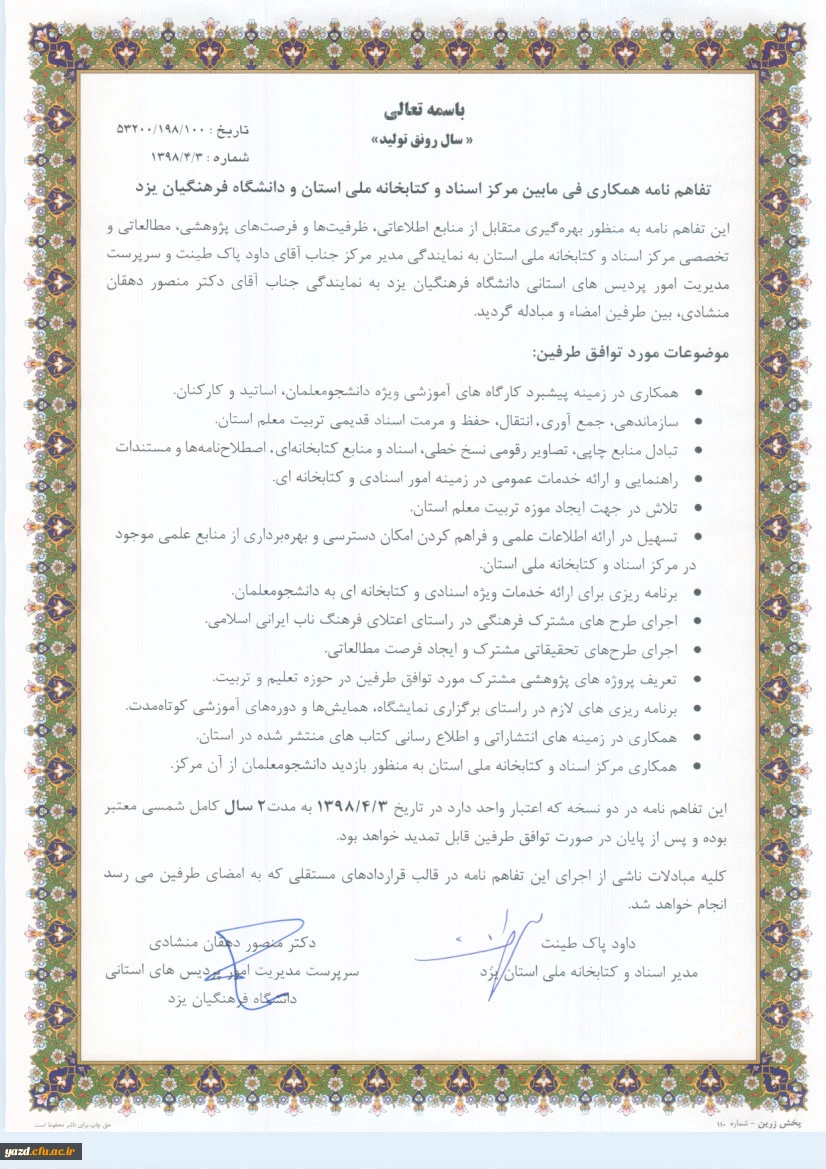 باسمه تعالی
« سال رونق تولید»
تاریخ : ۵۳۲۰۰/۱۹۸/۱۰۰
شماره : ۱۳۹۸/۴/۳
تفاهم نامه همکاری فی مابین مرکز اسناد و کتابخانه ملی استان و دانشگاه فرهنگیان یزد
این تفاهم نامه به منظور بهره‌گیری متقابل از منابع اطلاعاتی، ظرفیت‌ها و فرصت‌های پژوهشی، مطالعاتی و
تخصصی مرکز اسناد و کتابخانه ملی استان به نمایندگی مدیر مرکز جناب آقای داود پاک طینت و سرپرست
مدیریت امور پردیس های استانی دانشگاه فرهنگیان یزد به نمایندگی جناب آقای دکتر منصور دهقان
منشادی، بین طرفین امضاء و مبادله گردید.
موضوعات مورد توافق طرفین:
• همکاری در زمینه پیشبرد کارگاه های آموزشی ویژه دانشجومعلمان، اساتید و کارکنان.
• سازماندهی، جمع آوری، انتقال، حفظ و مرمت اسناد قدیمی تربیت معلم استان.
• تبادل منابع چاپی، تصاویر رقومی نسخ خطی، اسناد و منابع کتابخانه‌ای، اصطلاح‌نامه‌ها و مستندات
• راهنمایی و ارائه خدمات عمومی در زمینه امور اسنادی و کتابخانه ای.
• تلاش در جهت ایجاد موزه تربیت معلم استان.
• تسهیل در ارائه اطلاعات علمی و فراهم کردن امکان دسترسی و بهره‌برداری از منابع علمی موجود
در مرکز اسناد و کتابخانه ملی استان.
• برنامه ریزی برای ارائه خدمات ویژه اسنادی و کتابخانه ای به دانشجومعلمان.
• اجرای طرح های مشترک فرهنگی در راستای اعتلای فرهنگ ناب ایرانی اسلامی.
• اجرای طرح‌های تحقیقاتی مشترک و ایجاد فرصت مطالعاتی.
• تعریف پروژه های پژوهشی مشترک مورد توافق طرفین در حوزه تعلیم و تربیت.
• برنامه ریزی های لازم در راستای برگزاری نمایشگاه، همایش‌ها و دوره‌های آموزشی کوتاه‌مدت.
• همکاری در زمینه های انتشاراتی و اطلاع رسانی کتاب های منتشر شده در استان.
• همکاری مرکز اسناد و کتابخانه ملی استان به منظور بازدید دانشجومعلمان از آن مرکز.
این تفاهم نامه در دو نسخه که اعتبار واحد دارد در تاریخ ۱۳۹۸/۴/۳ به مدت۲ سال کامل شمسی معتبر
بوده و پس از پایان در صورت توافق طرفین قابل تمدید خواهد بود.
کلیه مبادلات ناشی از اجرای این تفاهم نامه در قالب قراردادهای مستقلی که به امضای طرفین می رسد
انجام خواهد شد.
داود پاک طینت
مدیر اسناد و کتابخانه ملی استان یزد
دکتر منصور دهقان منشادی
سرپرست مدیریت امور پردیس های استانی
دانشگاه فرهنگیان یزد
پخش زرین - شماره ۱۱۰
حق چاپ برای ناشر محفوظ است.
yazd.cfu.ac.ir